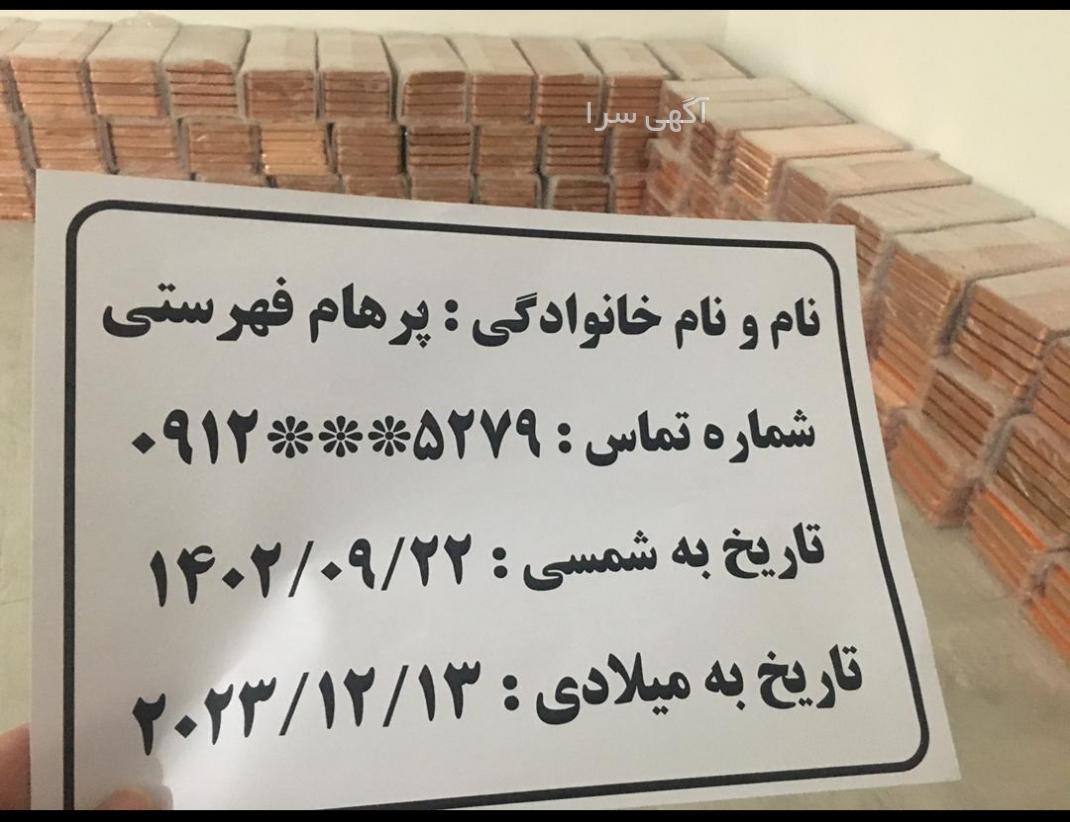 آگهی سرا
نام و نام خانوادگی : پرهام فهرستی
شماره تماس : ۰۹۱۲***۵۲۷۹
تاریخ به شمسی : ۱۴۰۲/۰۹/۲۲
تاریخ به میلادی : ۲۰۲۳/۱۲/۱۳